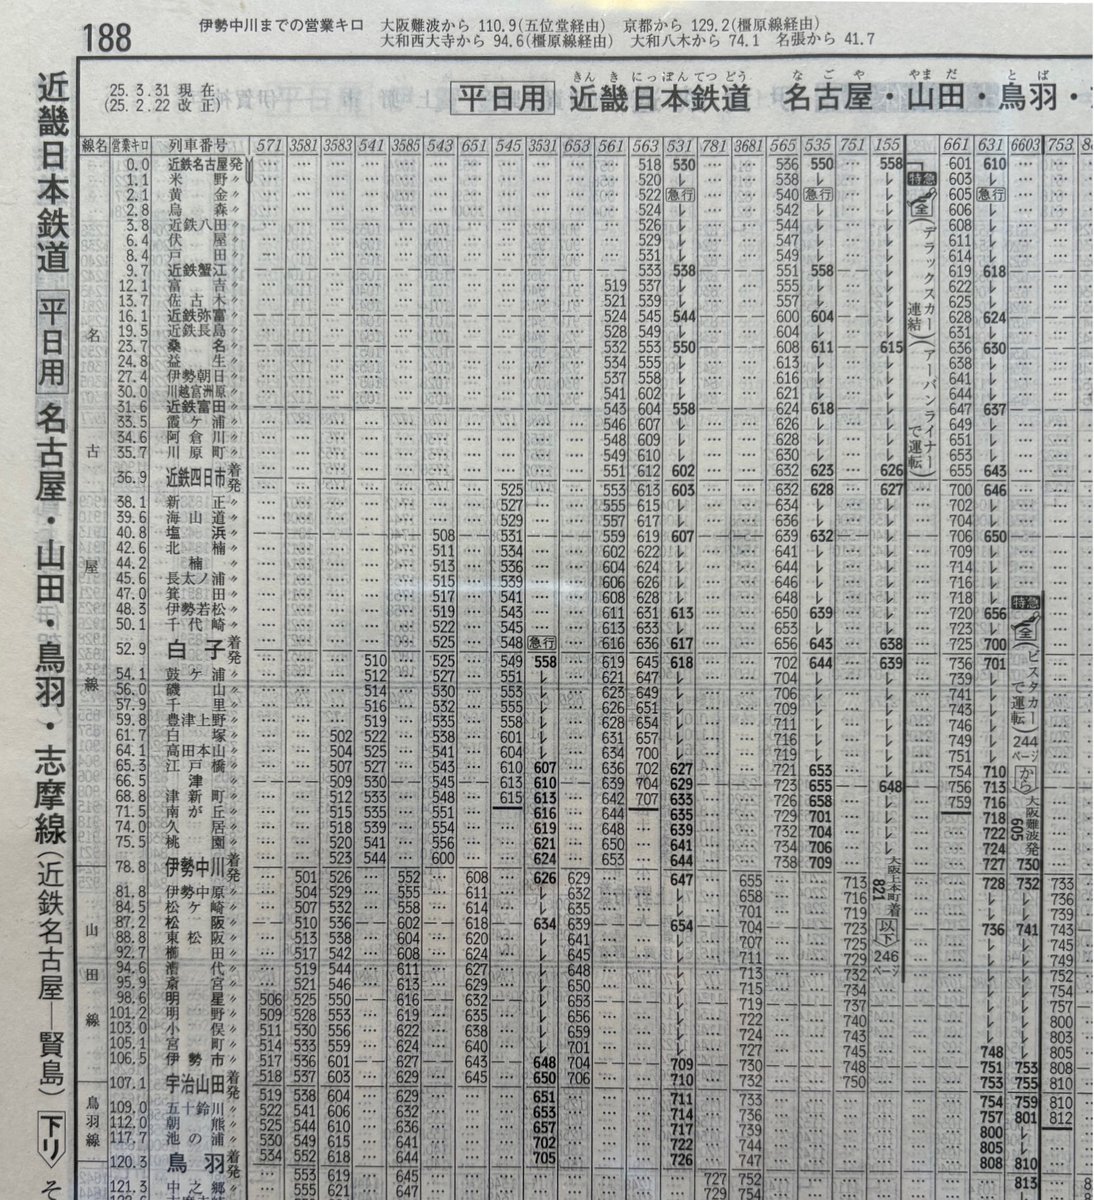 188
伊勢中川までの営業キロ 大阪難波から 110.9(五位堂経由) 京都から 129.2(橿原線経由)
大和西大寺から 94.6(橿原線経由) 大和八木から 74.1 名張から 41.7
近畿日本鉄道 平日用 名古屋・山田・鳥羽・志摩線(近鉄名古屋―賢島) 下り
25. 3.31 現在
(25. 2.22 改正)
きん き にっ ぽん てつ どう な ご や やま だ と ば
平日用 近畿日本鉄道 名古屋・山田・鳥羽・
線名 営業キロ 列車番号 571 3581 3583 541 3585 543 651 545 3531 653 561 563 531 781 3681 565 535 751 155 661 631 6603 753
0.0 近鉄名古屋発 518 530 536 550 558 601 610
1.1 米野〃 520 538 603
2.1 黄金〃 522 急行 540 急行 605 急行
2.8 烏森〃 524 542 606
3.8 近鉄八田〃 526 544 608
6.4 伏屋〃 529 547 611
8.4 戸田〃 531 549 614
9.7 近鉄蟹江〃 533 538 551 558 619 618
12.1 富吉〃 519 537 555 622
13.7 佐古木〃 521 539 557 625
16.1 近鉄弥富〃 524 545 544 600 604 628 624
19.5 近鉄長島〃 528 549 604 631
23.7 桑名〃 532 553 550 608 611 615 636 630
24.8 益生〃 534 555 613 638
27.4 伊勢朝日〃 537 558 616 641
30.0 川越富洲原〃 541 602 621 644
31.6 近鉄富田〃 543 604 558 624 618 647 637
33.5 霞ヶ浦〃 546 607 626 651
34.6 阿倉川〃 548 609 628 653
35.7 川原町〃 549 610 630 655 649
36.9 近鉄四日市着 551 612 602 632 623 626 655 643
発 525 553 613 603 632 628 627 700 646
38.1 新正〃 527 555 615 634 702
39.6 海山道〃 529 557 617 636 704
40.8 塩浜〃 508 531 559 619 607 639 632 706 650
42.6 北楠〃 511 534 602 622 641 709
44.2 楠〃 513 536 604 624 644 714
45.6 長太ノ浦〃 515 539 606 626 646 716
47.0 箕田〃 517 541 608 628 648 718
48.3 伊勢若松〃 519 543 611 631 613 650 639 720 656
50.1 千代崎〃 522 545 613 633 653 723
52.9 白子着 525 548 急行 616 636 617 656 643 638 725 700
発 510 525 549 558 619 645 618 702 644 639 736 701
54.1 鼓ヶ浦〃 512 527 551 621 647 704 739
56.0 磯山〃 514 530 553 623 649 706 741
57.9 千里〃 516 532 555 626 651 709 743
59.8 豊津上野〃 519 535 558 628 654 711 746
61.7 白塚〃 502 522 538 601 631 657 716 749
64.1 高田本山〃 504 525 541 604 634 700 719 751
65.3 江戸橋〃 507 527 543 610 607 636 702 627 721 653 754 710
66.5 津〃 509 530 545 613 610 639 704 629 723 655 648 756 713
68.8 津新町〃 512 533 548 615 613 642 707 633 726 658 759 716
71.5 南が丘〃 515 535 551 616 644 635 729 701 718
74.0 久居〃 518 539 554 619 648 639 732 704 722
75.5 桃園〃 520 541 556 621 650 641 734 706 724
78.8 伊勢中川着 523 544 600 624 653 644 738 709 727 730
発 501 526 552 608 626 629 647 655 713 728 732 733
81.8 伊勢中原〃 504 529 555 611 632 658 716 736
84.5 松ヶ崎〃 507 532 558 614 635 701 719 739
87.2 松阪〃 510 536 602 618 634 639 654 704 723 736 741 743
88.8 東松阪〃 513 538 604 620 641 707 725 745
92.7 櫛田〃 517 542 608 624 645 711 729 749
94.6 漕代〃 519 544 611 627 648 713 732 752
95.9 斎宮〃 521 546 613 629 650 715 734 754
98.6 明星〃 506 525 550 616 632 653 719 737 757
101.2 明野〃 509 528 553 619 635 656 722 740 800
103.0 小俣〃 511 530 556 622 638 659 724 743 803
105.1 宮町〃 514 533 559 624 640 701 727 745 748 805
106.5 伊勢市〃 517 536 601 627 643 648 704 709 730 748 751 753 808
107.1 宇治山田着 518 537 603 629 645 650 706 710 732 750 753 755 810
発 519 538 604 629 651 711 733 754 759 810
109.0 五十鈴川〃 522 541 606 632 653 714 736 757 801 812
112.0 朝熊〃 525 544 610 636 657 717 739 800
117.7 池の浦〃 530 549 615 641 702 722 744 805
120.3 鳥羽着 534 552 618 644 705 726 747 808 810
発 553 619 645 727 752 813
121.3 中之郷 555 621 647 729 754
名古屋線
山田線
鳥羽線
特急
(デラックスカー連結)(アーバンライナーで運転)
大阪上本町着 821
以下 246ページ
特急
(ビスタカーで運転)
244ページから
大阪難波発 605